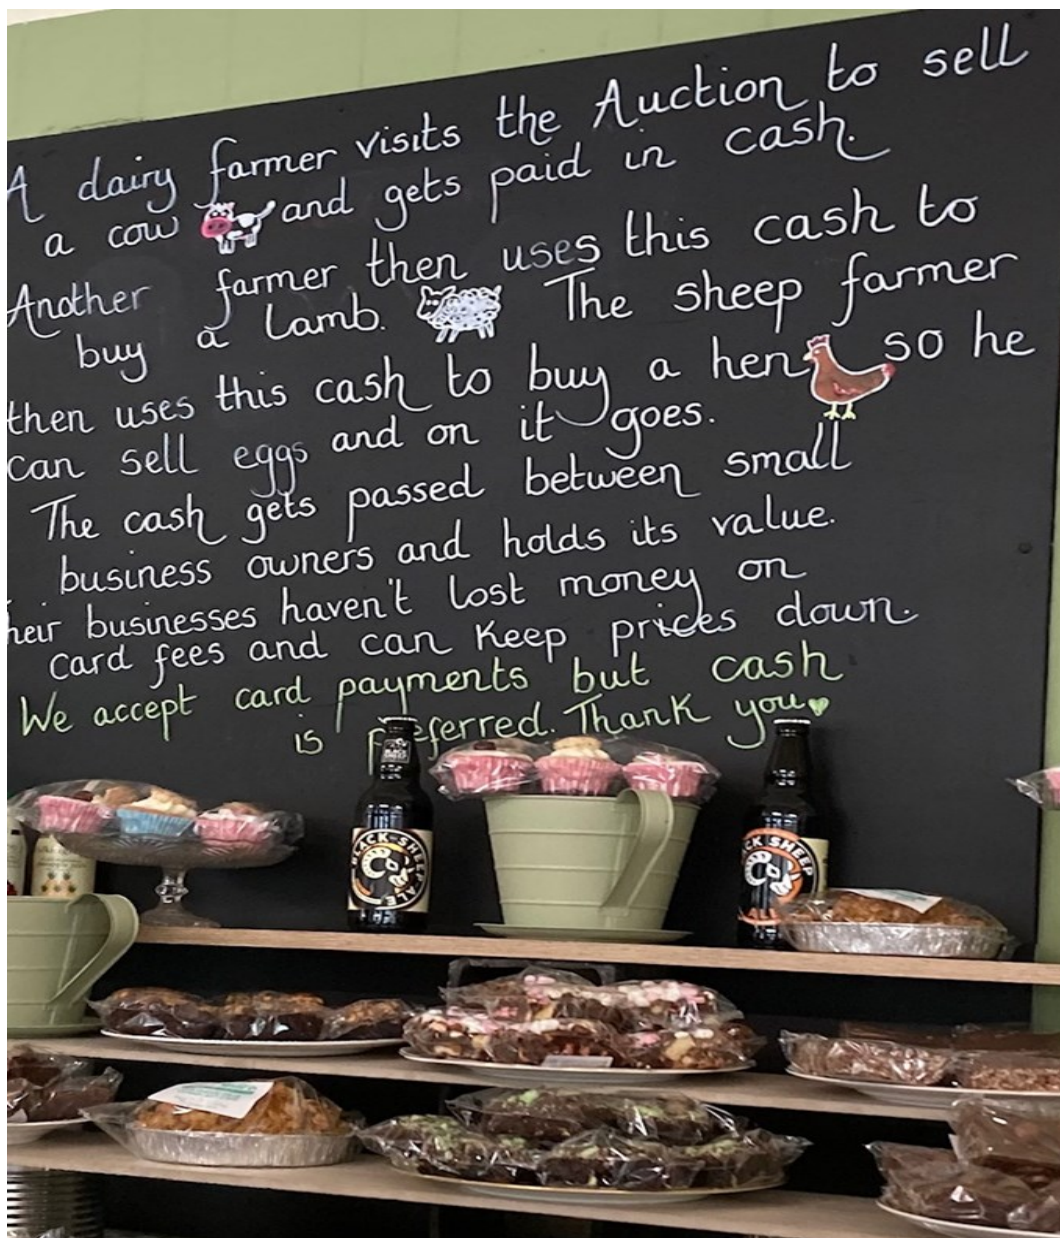 A dairy farmer visits the Auction to sell
a cow and gets paid in cash.
Another farmer then uses this cash to
buy a lamb. The sheep farmer
then uses this cash to buy a hen so he
can sell eggs and on it goes.
The cash gets passed between small
business owners and holds its value.
heir businesses haven't lost money on
card fees and can keep prices down.
We accept card payments but cash
is preferred. Thank you
BLACK SHEEP
ALE
CK SHEEP
ALE